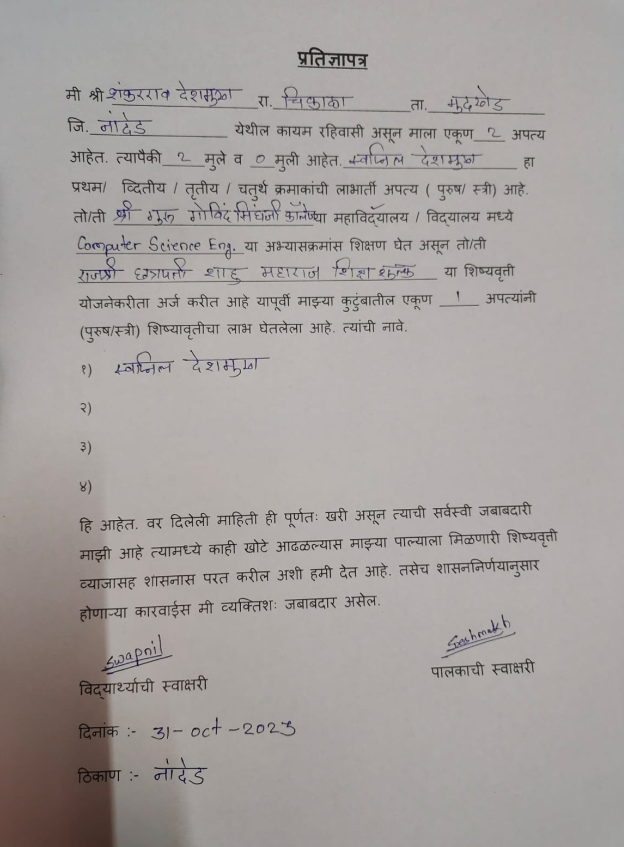 प्रतिज्ञापत्र
मी श्री शंकरराव देशमुख रा. चिकाळा ता. मुदखेड
जि. नांदेड येथील कायम रहिवासी असून माला एकूण 2 अपत्य
आहेत. त्यापैकी 2 मुले व 0 मुली आहेत. स्वप्निल देशमुख हा
प्रथम/ व्दितीय / तृतीय / चतुर्थ क्रमाकांची लाभार्ती अपत्य ( पुरुष/ स्त्री) आहे.
तो/ती श्री गुरु गोविंद सिंघजी कॉलेज्या महाविद्यालय / विद्यालय मध्ये
Computer Science Eng. या अभ्यासक्रमांस शिक्षण घेत असून तो/ती
राजश्री छत्रपती शाहु महाराज शिक्षा शुल्क या शिष्यवृत्ती
योजनेकरीता अर्ज करीत आहे यापूर्वी माझ्या कुटुंबातील एकूण 1 अपत्यांनी
(पुरुष/स्त्री) शिष्यावृतीचा लाभ घेतलेला आहे. त्यांची नावे.
१) स्वप्निल देशमुख
२)
३)
४)
हि आहेत. वर दिलेली माहिती ही पूर्णतः खरी असून त्याची सर्वस्वी जबाबदारी
माझी आहे त्यामध्ये काही खोटे आढळल्यास माझ्या पाल्याला मिळणारी शिष्यवृत्ती
व्याजासह शासनास परत करील अशी हमी देत आहे. तसेच शासननिर्णयानुसार
होणाऱ्या कारवाईस मी व्यक्तिशः जबाबदार असेल.
Swapnil
विद्यार्थ्याची स्वाक्षरी
पालकाची स्वाक्षरी
दिनांक :- 31-Oct-2023
ठिकाण :- नांदेड